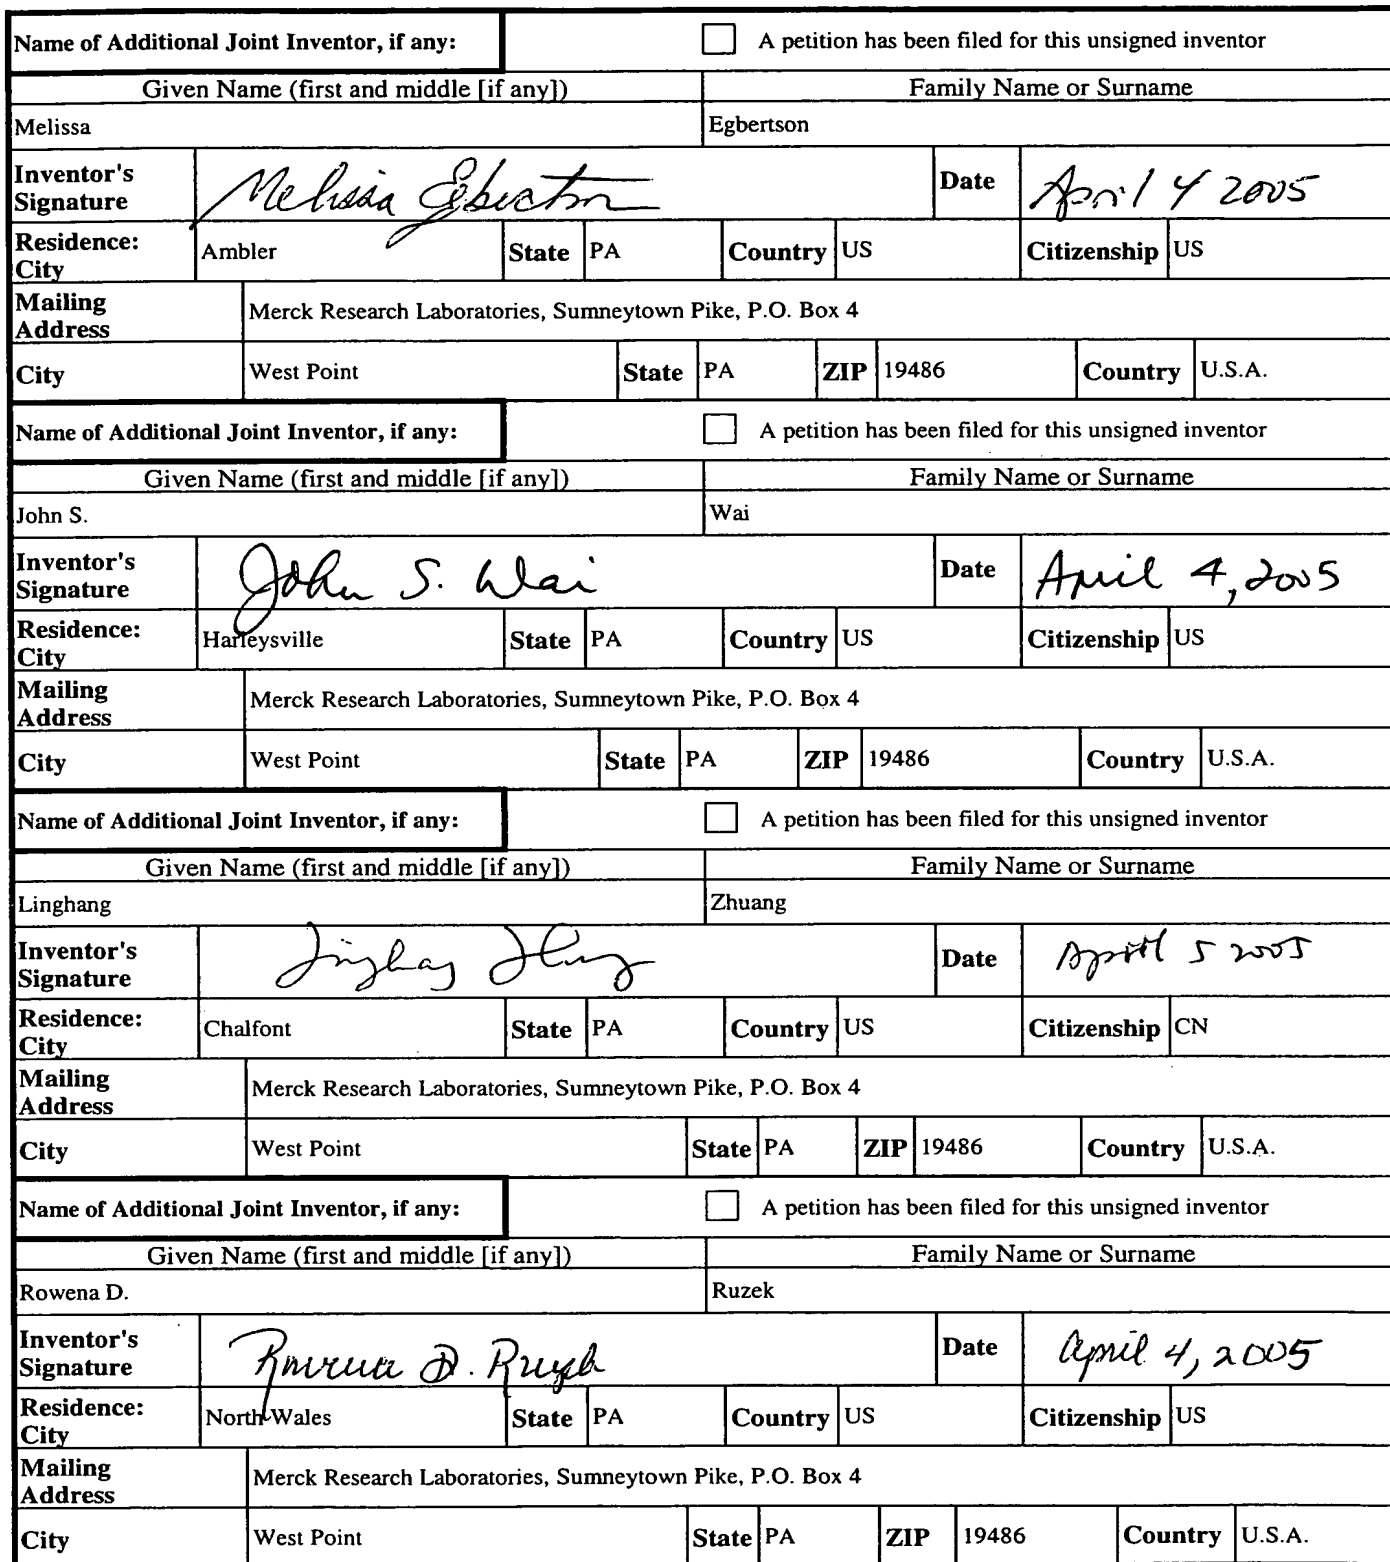 Name of Additional Joint Inventor, if any: A petition has been filed for this unsigned inventor
Given Name (first and middle [if any]) Family Name or Surname
Melissa Egbertson
Inventor's Signature Melissa Egbertson Date April 4 2005
Residence: City Ambler State PA Country US Citizenship US
Mailing Address Merck Research Laboratories, Sumneytown Pike, P.O. Box 4
City West Point State PA ZIP 19486 Country U.S.A.
Name of Additional Joint Inventor, if any: A petition has been filed for this unsigned inventor
Given Name (first and middle [if any]) Family Name or Surname
John S. Wai
Inventor's Signature John S. Wai Date April 4, 2005
Residence: City Harleysville State PA Country US Citizenship US
Mailing Address Merck Research Laboratories, Sumneytown Pike, P.O. Box 4
City West Point State PA ZIP 19486 Country U.S.A.
Name of Additional Joint Inventor, if any: A petition has been filed for this unsigned inventor
Given Name (first and middle [if any]) Family Name or Surname
Linghang Zhuang
Inventor's Signature Linghang Zhuang Date April 5 2005
Residence: City Chalfont State PA Country US Citizenship CN
Mailing Address Merck Research Laboratories, Sumneytown Pike, P.O. Box 4
City West Point State PA ZIP 19486 Country U.S.A.
Name of Additional Joint Inventor, if any: A petition has been filed for this unsigned inventor
Given Name (first and middle [if any]) Family Name or Surname
Rowena D. Ruzek
Inventor's Signature Rowena D. Ruzek Date April 4, 2005
Residence: City North Wales State PA Country US Citizenship US
Mailing Address Merck Research Laboratories, Sumneytown Pike, P.O. Box 4
City West Point State PA ZIP 19486 Country U.S.A.